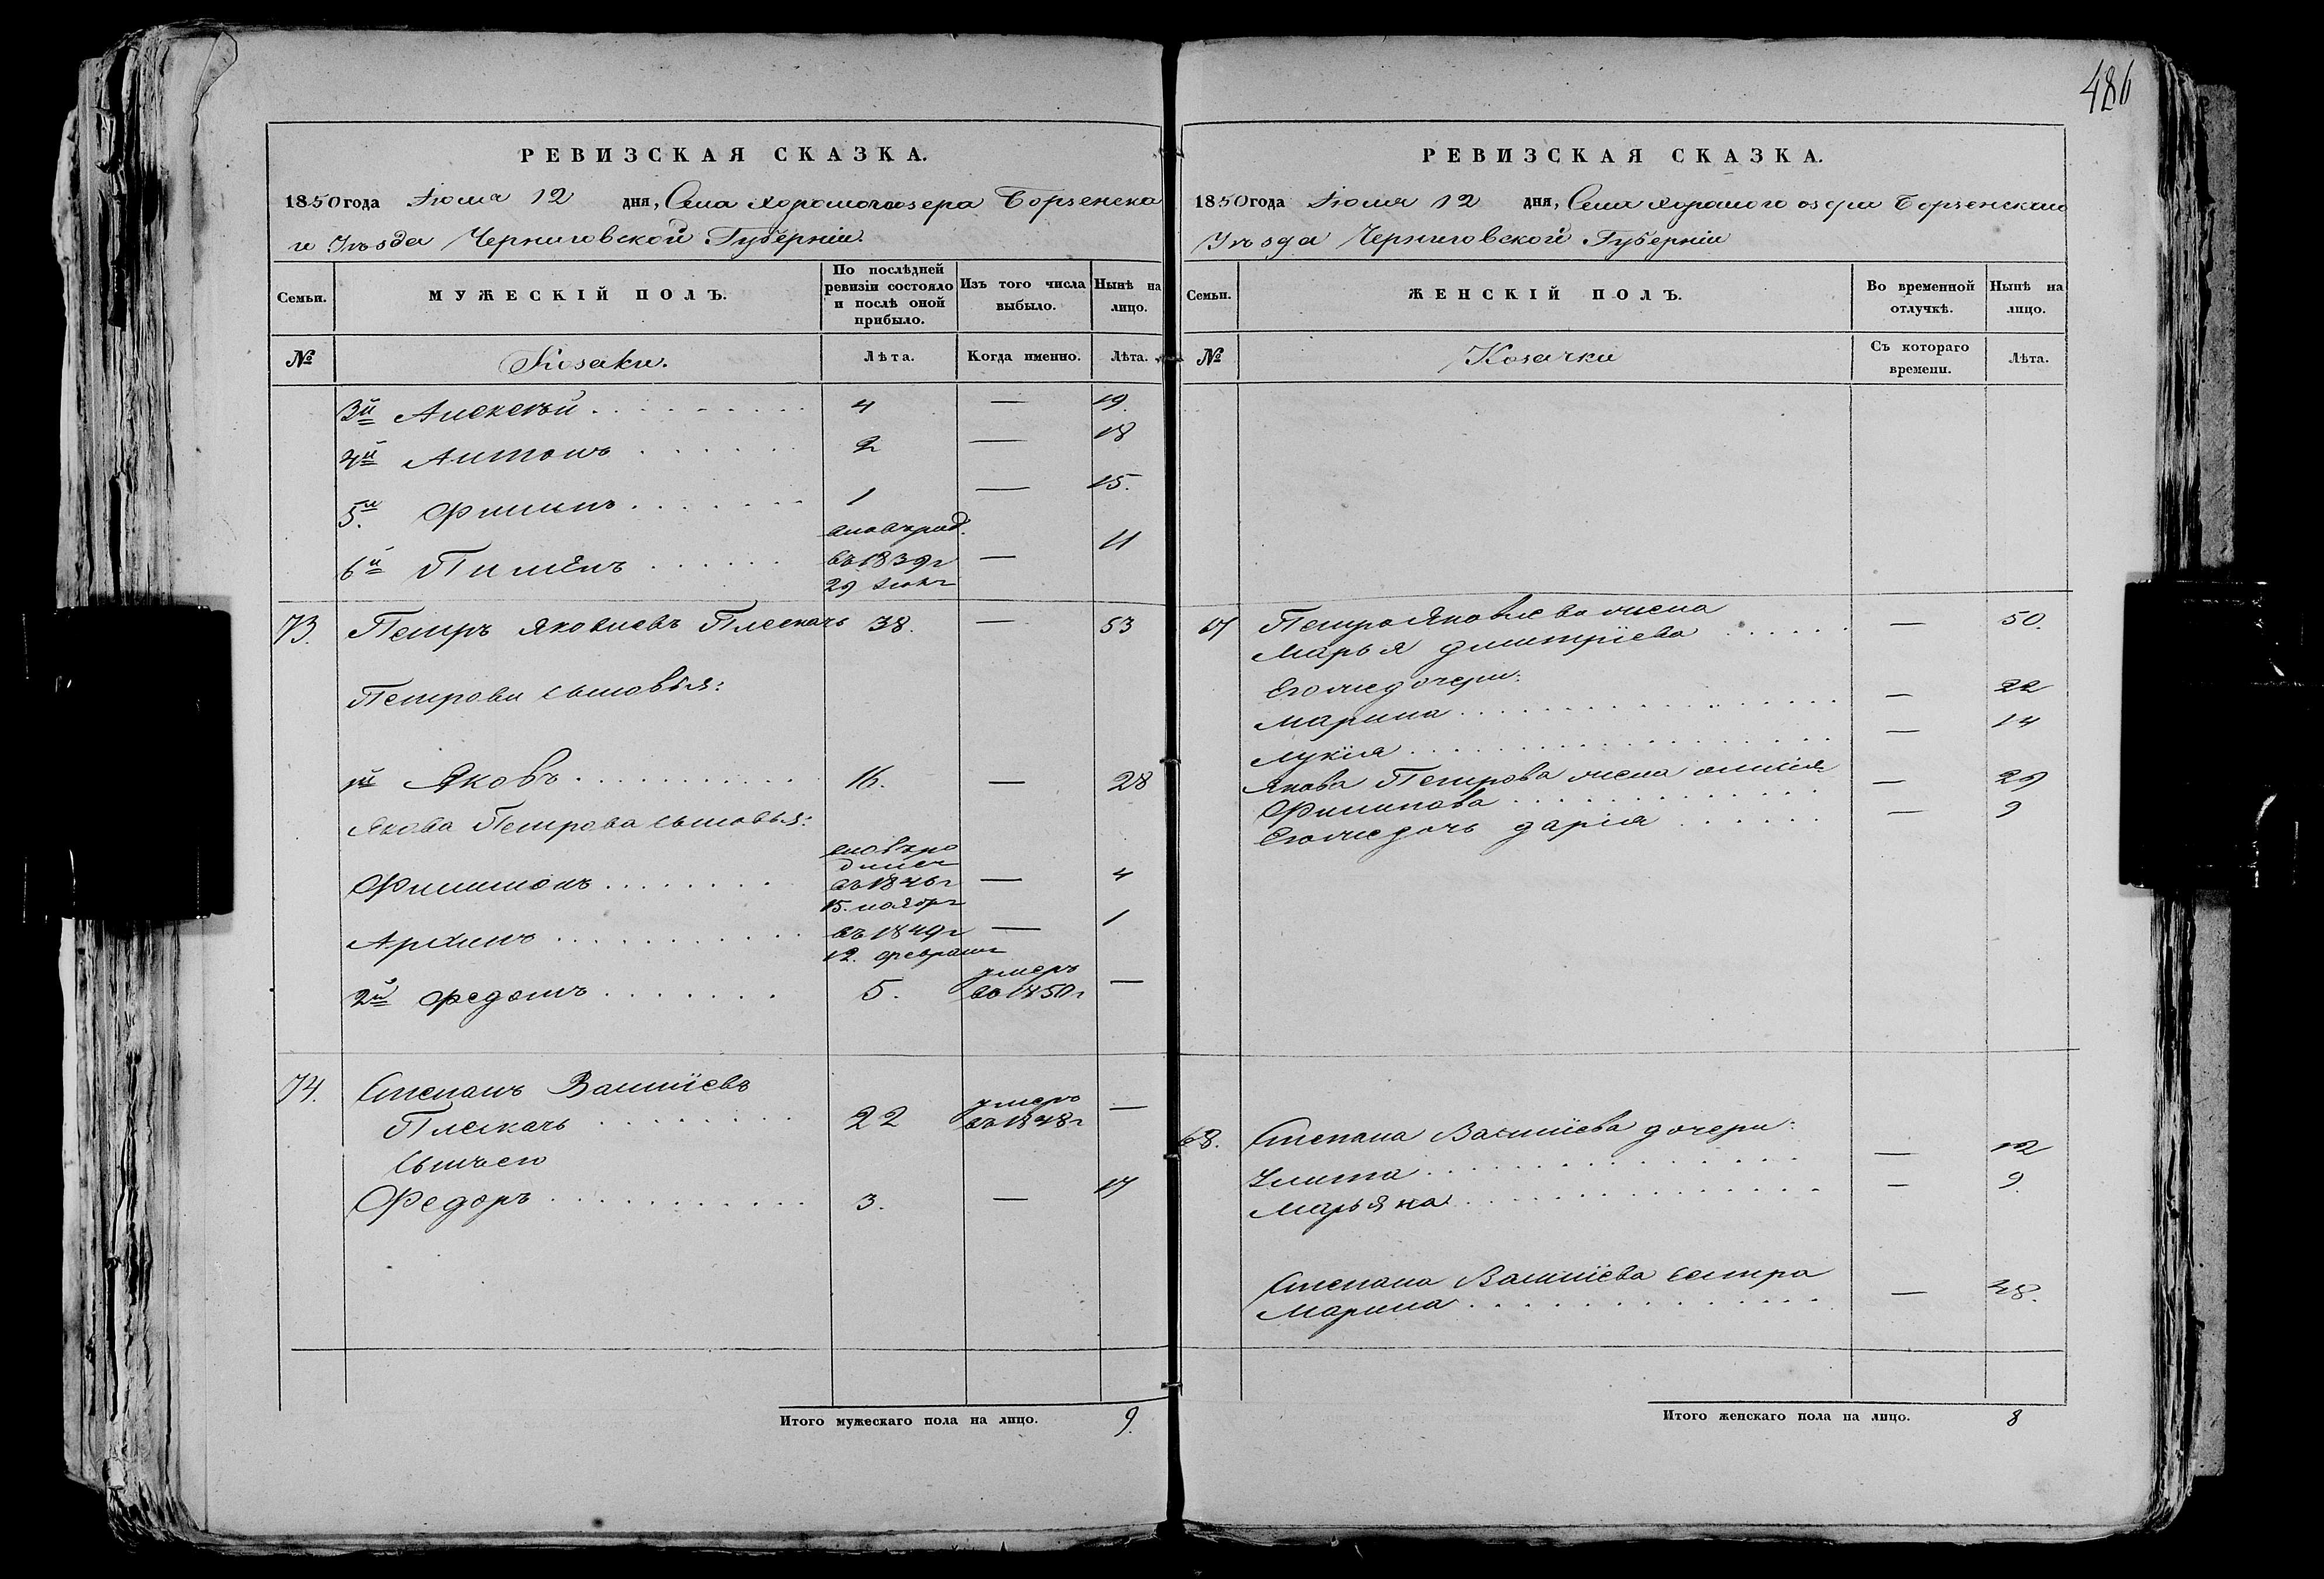 486
РЕВИЗСКАЯ СКАЗКА.
1850 года Июля 12 дня, Села Хорошогоозера Борзенска
го Уѣзда Черниговской Губерніи.
Семьи. МУЖЕСКІЙ ПОЛЪ. По послѣдней ревизіи состояло и послѣ оной прибыло. Изъ того числа выбыло. Нынѣ на лицо.
№ Козаки. Лѣта. Когда именно. Лѣта.
3й Алексѣй 4 — 19.
4й Антонъ 2 — 18
5й Филипъ 1 — 15.
6й Пименъ въ 1839г — 11
73. Петръ Яковлевъ Плескачъ 38. — 53
Петрови сыновья:
1й Яковъ 16. — 28
Якова Петрова сыновья:
новоро
дился
Филимонъ въ 1846г — 4
15. ноябр
Архипъ въ 1849г — 1
12. февраля
2й Федотъ 5. умеръ въ 1850г —
74. Степанъ
Плескачъ 22 умеръ въ 1848г —
Сынъ его
Федоръ 3. — 17
Итого мужескаго пола на лицо. 9.
РЕВИЗСКАЯ СКАЗКА.
1850 года Июля 12 дня, Села Хорошого озера Борзенскаго
Уѣзда Черниговской Губерніи
Семьи. ЖЕНСКІЙ ПОЛЪ. Во временной отлучкѣ. Нынѣ на лицо.
№ Козачки Съ котораго времени. Лѣта.
67 Петра Яковлева жена
Марья Дмитріева — 50.
Его же дочери:
Марина — 22
Лукія — 14
Якова Петрова жена
Филипова — 29
Его же дочь Дарія — 9
68. Степана дочери:
Улита — 12
Марьяна — 9.
Степана сестра
Марина — 48.
Итого женскаго пола на лицо. 8